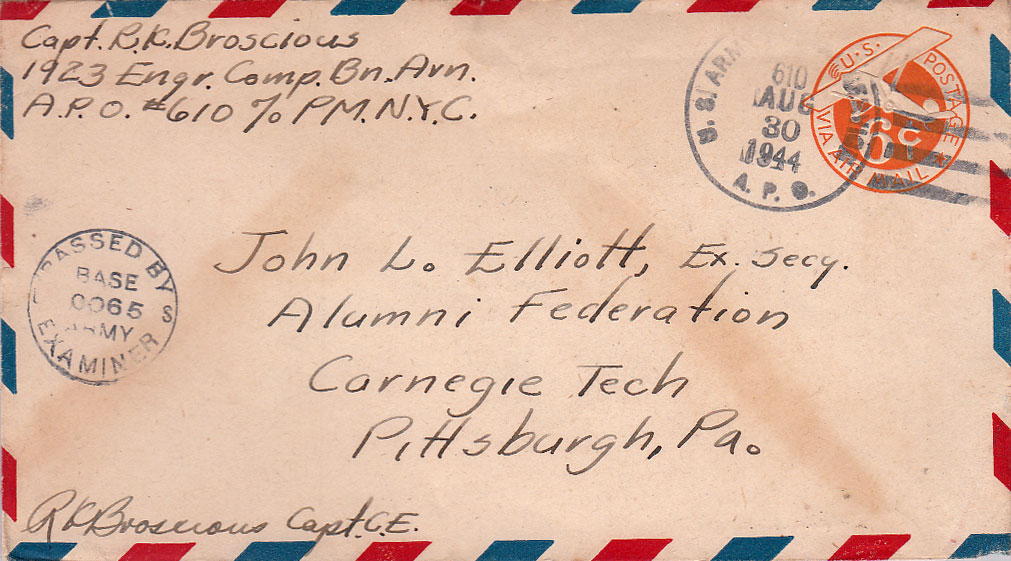 Capt. R.K. Broscious
1923 Engr. Comp. Bn. Avn.
A.P.O. #610 % P.M.N.Y.C.
U.S. ARMY
610
AUG
30
1944
A. P. O.
U.S. POSTAGE
6c
VIA AIR MAIL
PASSED BY
BASE
0065
ARMY
EXAMINER
S
John L. Elliott, Ex. Secy.
Alumni Federation
Carnegie Tech
Pittsburgh, Pa.
RK Broscious Capt. C.E.